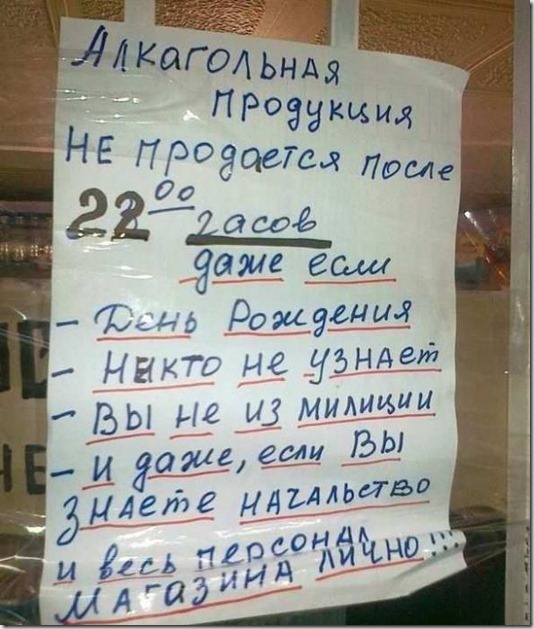 Алкагольная
продукция
НЕ продается после
22⁰⁰ часов
даже если
- День Рождения
- Никто не узнает
- Вы не из милиции
- и даже, если Вы
знаете начальство
и весь персонал
магазина лично!!!
НЕ